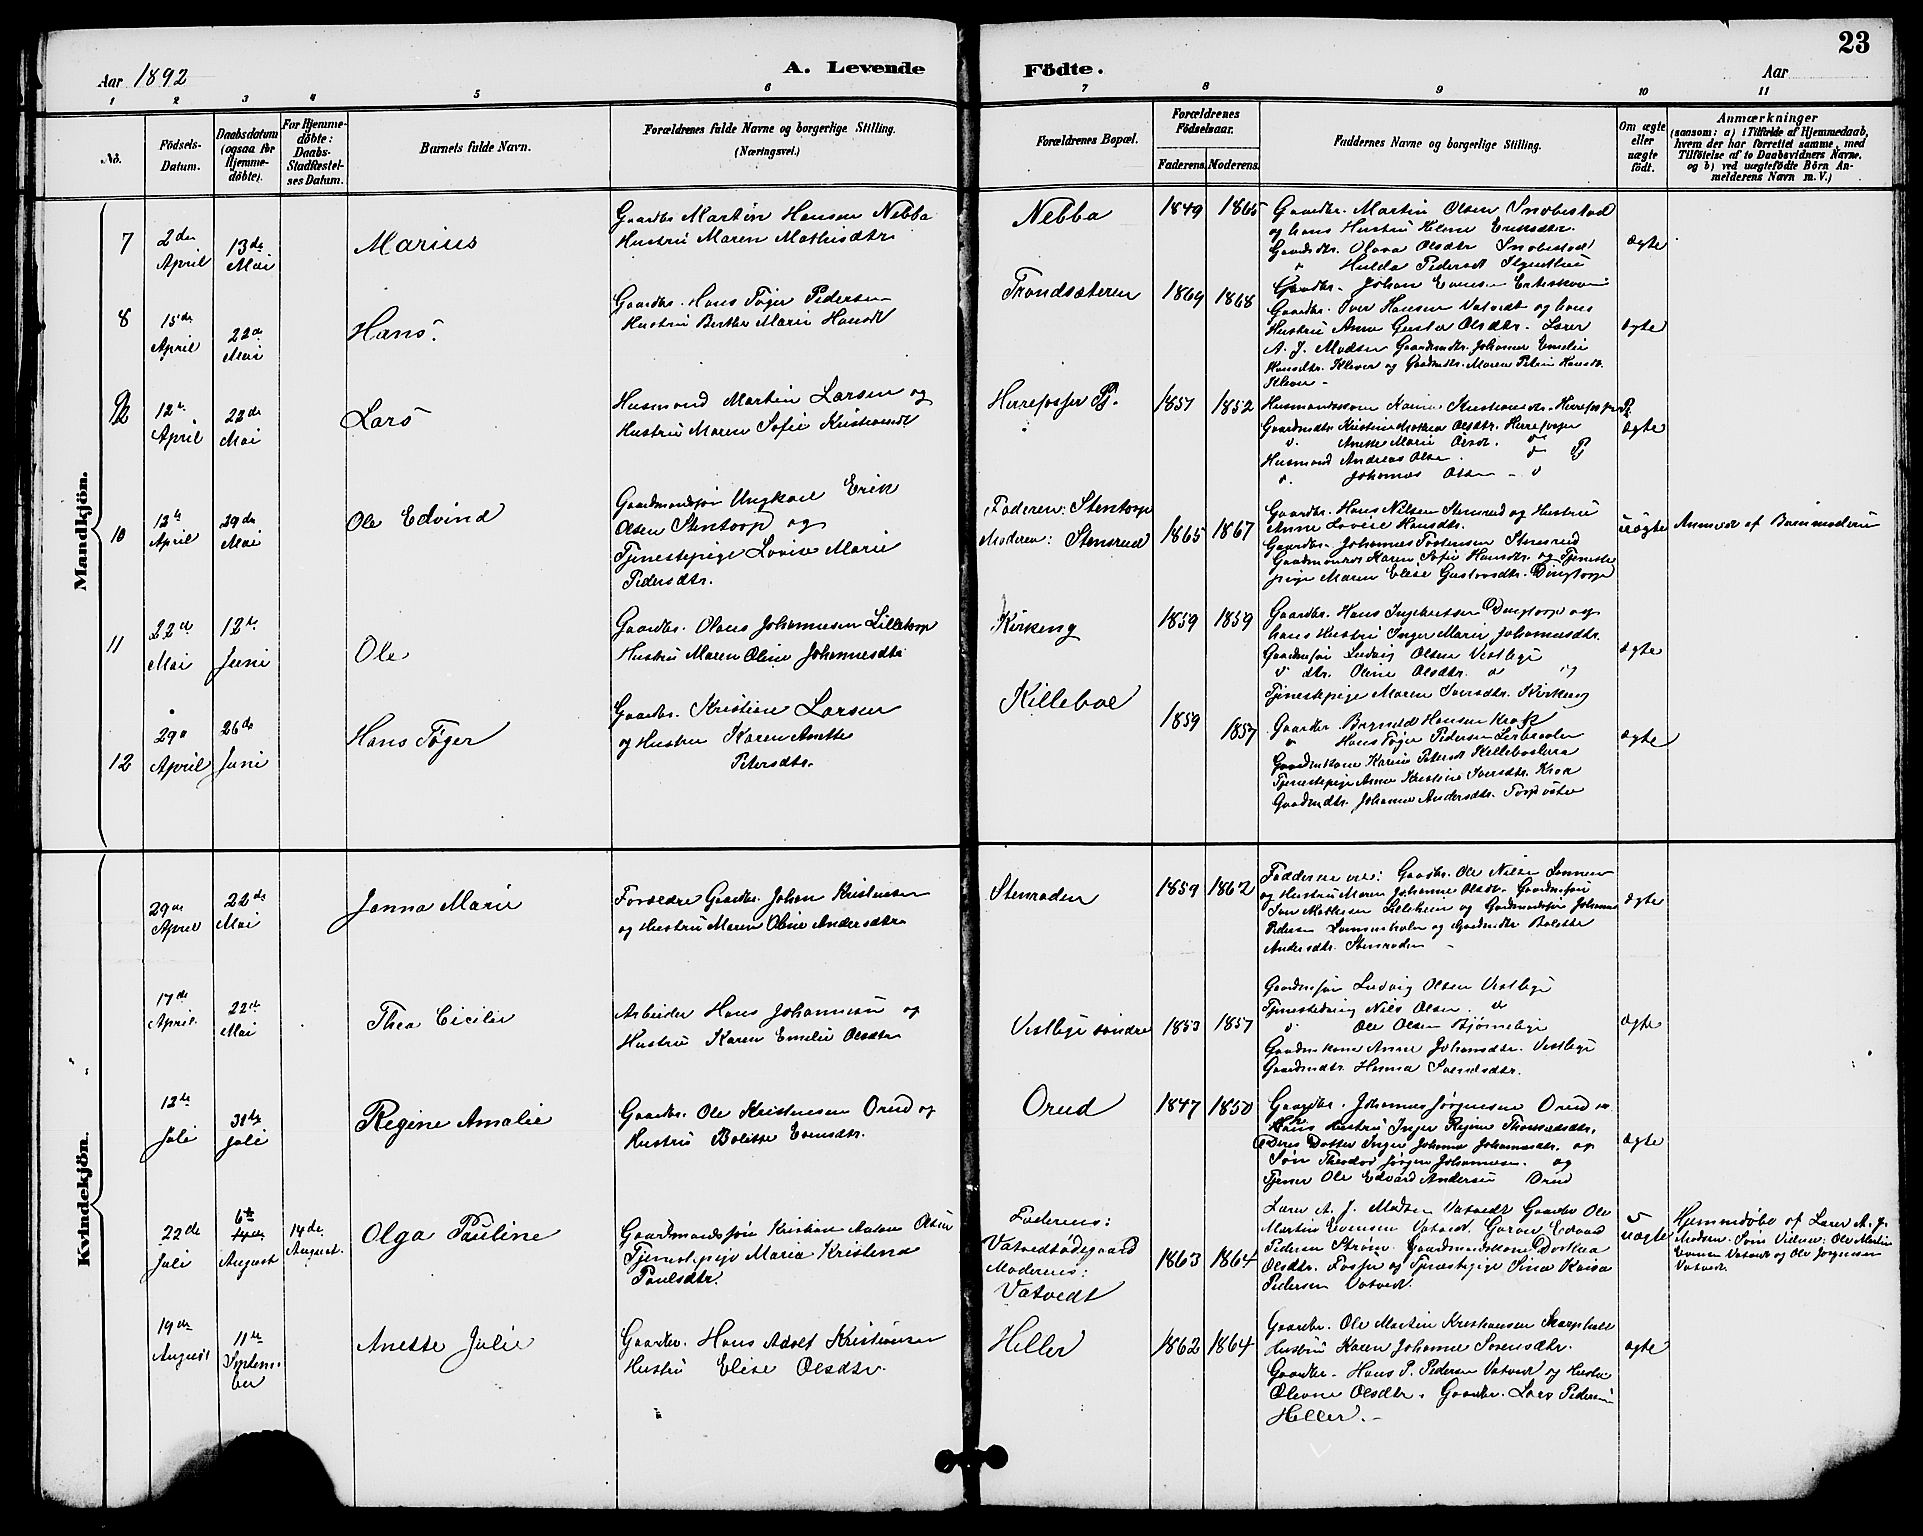 23
Aar 1892
A. Levende Födte.
Aar
1 2 3 4 5 6 7 8 9 10 11
No.
Födsels-Datum.
Daabsdatum (ogsaa for Hjemme-døbte).
For Hjemme-døbte: Daabs-Stadfæstel-ses Datum.
Barnets fulde Navn.
Forældrenes fulde Navne og borgerlige Stilling.
(Næringsvei.)
Forældrenes Bopæl.
Forældrenes Fødselsaar.
Faderens. Moderens.
Faddernes Navne og borgerlige Stilling.
Om ægte eller uægte født.
Anmærkninger
(saasom: a) i Tilfælde af Hjemmedaab,
hvem der har forrettet samme, med
Tilföielse af to Daabsvidners Navne.
og b) ved uægtefödte Börn An-
melderens Navn m. V.)
Mandkjön.
7
2de April
13de Mai
Marius
Gaardbr. Martin Hansen Nebba
Hustru Maren Mathisdtr
Nebba
1849 1865
Gaardbr. Martin Olsen Snobestad
og hans Hustru Helene Eriksdtr.
Olava Olsdtr Snobestad
Hulda Pedersdt
ægte
8
15de April
22de Mai
Hans
Gaardbr. Hans Tøger Pedersen
Hustru Berthe Marie Hansdt
Trondsæteren
1869 1868
Gaardbr. Johan Evensen
Gaardbr. Iver Hansen Vatvedt og hans
Hustru Anne Gustava Olsdtr. Lærer
A. J. Madsen Gaardmdtr. Johanne Emilie
Hansdtr. Kleven og Gaardmdtr. Maren Petrine Hansdtr.
Kleven
ægte
9
12te April
22de Mai
Lars
Husmand Martin Larsen og
Hustru Maren Sofie Kristiansdt
Herrefosser Pl.
1857 1852
Gaardmdtr Kristine Mathea Olsdtr. Herrefosser
Anette Marie Olsdt.
Husmand Andreas Olsen
Johannes Olsen
ægte
10
12te April
29de Mai
Ole Edvind
Gaardmandssøn Ungkarl Erik
Olsen Stentorp og
Tjenestepige Lovise Marie
Pedersdtr.
Faderen: Stentorp
Moderen: Stensrud
1865 1867
Gaardbr. Hans Nilsen Stensrud og Hustru
Anne Lovise Hansdtr.
Gaardbr. Johannes Torstensen Stensrud
Karen Sofie Hansdtr. og Tjeneste
pige Maren Elise Gustavsdtr. Dingtorp
uægte
Anmeldt af Barnemoderen
11
22de Mai
12te Juni
Ole
Gaardbr. Olaus Johannesen Lilletorp
Hustru Maren Oline Johannesdtr
Kirkeng
1859 1859
Gaardbr. Hans Ingebretsen Dingtorp og
hans Hustru Inger Marie Johannesdtr.
Gaardmsøn Ludvig Olsen Vestlige
dtr. Oline Olsdtr. og
Tjenestepige Maren Iversdtr. Kirkeng
ægte
12
29de April
26de Juni
Hans Tøger
Gaardbr. Kristian Larsen
og Hustru Karen Anette
Petersdtr.
Killeboe
1859 1857
Gaardbr. Berntdt Hansen Krok
Hans Tøger Pedersen
Gaardmkone Karine Petersdt
Tjenestepige Anne Kristine Iversdtr. Krok
Gaardmdtr. Johanne Andersdtr. Torp
ægte
Kvindekjön.
29de April
22de Mai
Janna Marie
Forældre Gaardbr. Johan Kristensen
og Hustru Maren Oline Andersdtr
Stenroden
1859 1862
Fadderne ere: Gaardbr. Ole Nilsen
og Hustru Maren Johanne Olsdtr. Gaardmsøn
og Gaardmandssøn Johannes
Pedersen og Gaardmdtr Bolette
Andersdtr. Stenroden
ægte
17de April
22de Mai
Thea Cicilie
Arbeider Hans Johannesen og
Hustru Karen Emilie Olsdtr
Vestlige søndre
1853 1857
Gaardmsøn Ludvig Olsen Vestlige
Tjenestedreng Nils Olsen
Ole Olsen Bjørnelige
Gaardmkone Anne Johansdtr. Vestlige
Gaardmdtr. Hanna Svendsdtr.
ægte
12te Juli
31te Juli
Regine Amalie
Gaardbr. Ole Kristensen Orud og
Hustru Bolette Evensdtr.
Orud
1847 1850
Gaardbr. Johannes Jørgensen Orud
Hans Hustru Inger Regine
Deres Datter Inger Johanne Johannesdtr. og
Søn Theodor Jørgen Johannesen og
Tjener Ole Edvard Andersen Orud
ægte
22de Juli
6te August
14de August.
Olga Pauline
Gaardmandssøn Kristian Anton Olsen
Tjenestepige Maria Kristena
Paulsdtr.
Faderens:
Vatvedtødegaard
Moderens:
Vatvedt
1863 1864
Lærer A. J. Madsen Vatvedt Gaardbr Ole
Martin Evensen Vatvedt Edvard
Pedersen Strøm. Gaardmandskone Dorthea
Olsdtr. Fosser og Tjenestepige Sina Kaisa
Pedersen Vatvedt.
uægte
Hjemmedøbt af Lærer A. J.
Madsen. Som Vidner: Ole Martin
Evensen Vatvedt og Ole Jørgensen
Vatvedt.
19de August
11te September
Anette Julie
Gaardbr. Hans Adolf Kristiansen
Hustru Elise Olsdtr.
Heller
1862 1864
Gaardbr. Ole Martin Kristiansen
Hustru Karen Johanne Sørensdtr.
Gaardbr. Hans P. Pedersen Vatvedt og Hustru
Olevne Olsdtr. Gaardbr. Lars Pedersen
Heller.
ægte